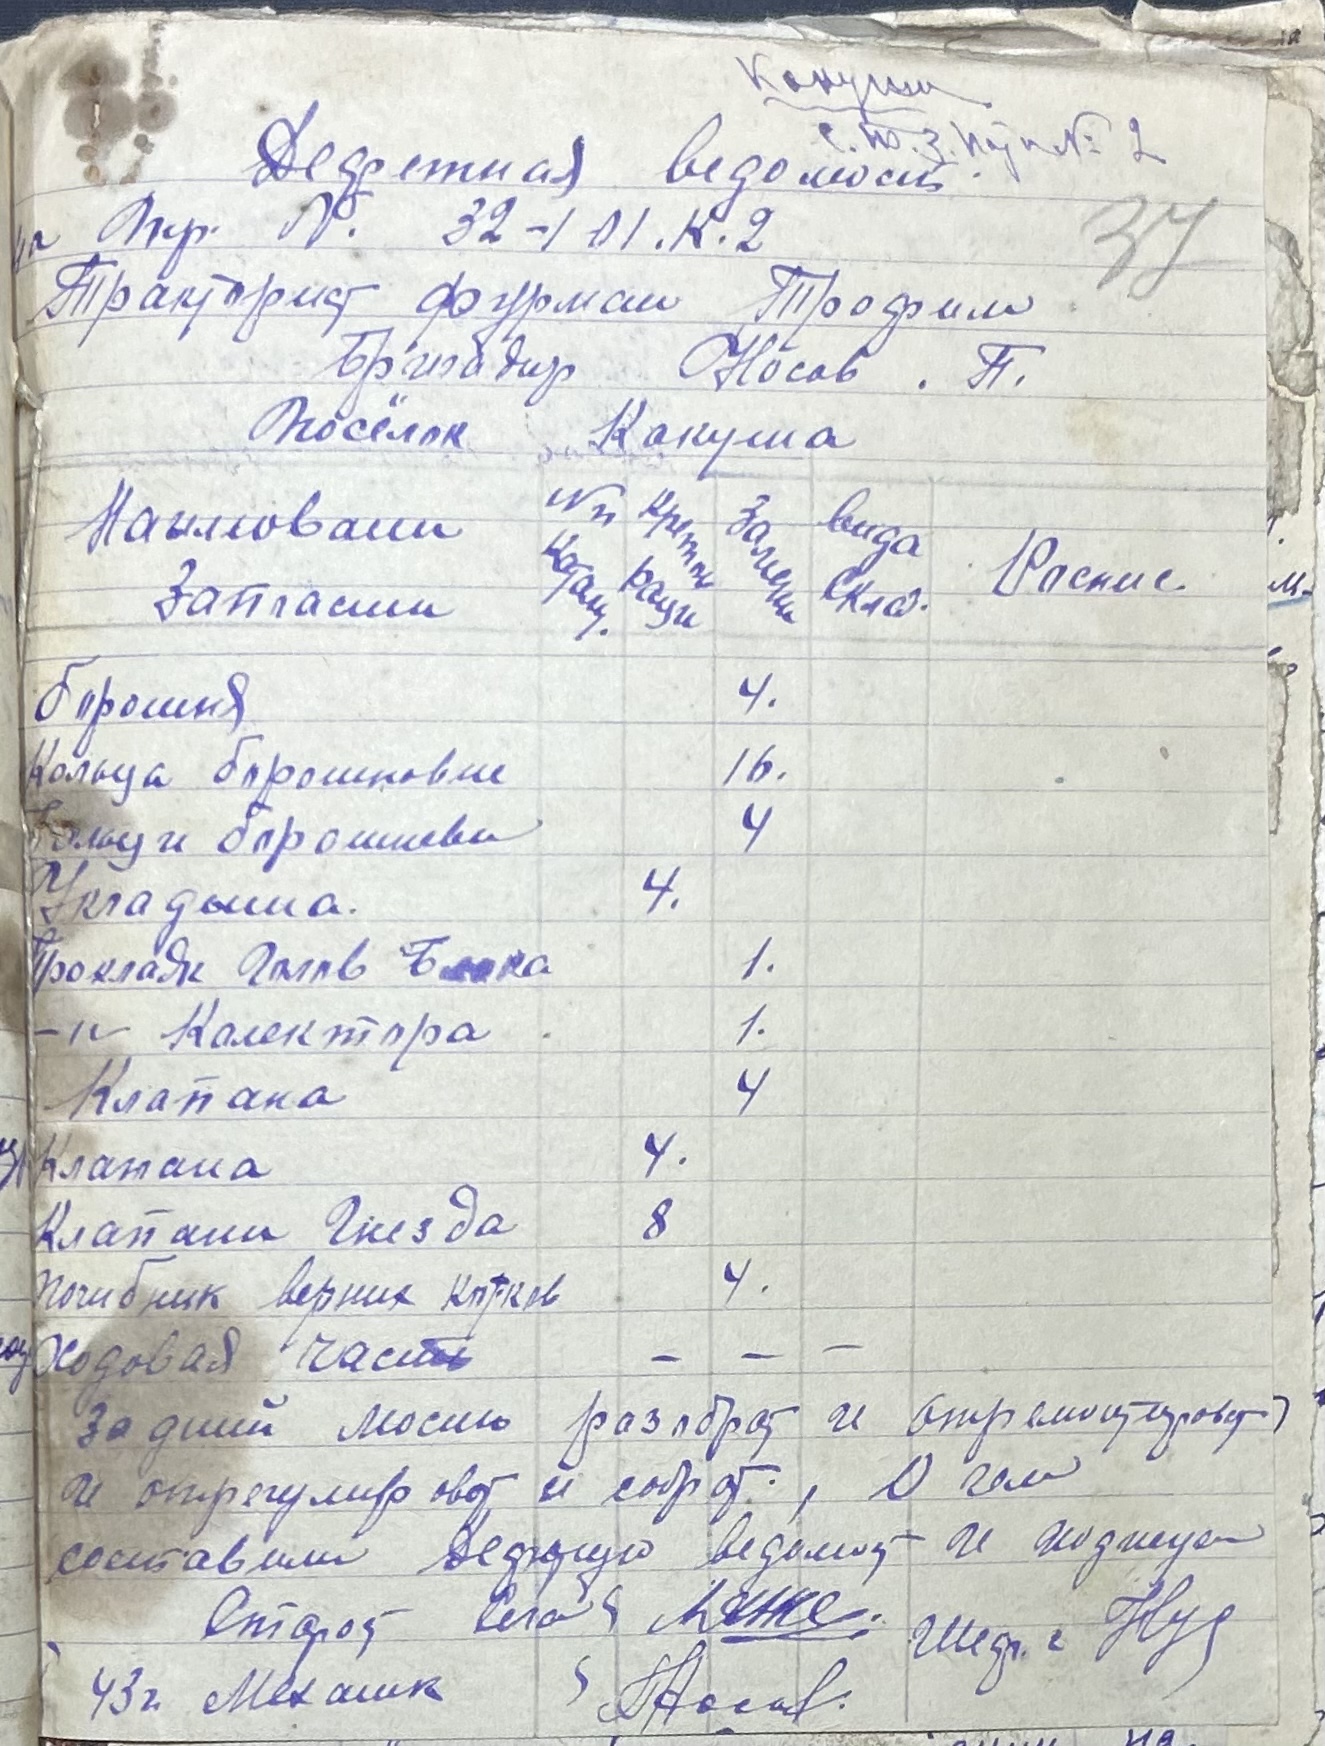 Какуши
с.т.з. № 2
Дефетная ведомость
37
на Тр. №. 32-101.К.2
Тракторист фурман Трофим
Бригадир Носов . Т.
Посёлок Какуша
Наимовани Запчасти
№ Катал.
Рестовраци
Замени
вида Скла.
Роспис.
Поршня 4.
Кольца поршновые 16.
Пальци поршневы 4
Укладыша. 4.
Прокладк Голов Блока 1.
-"- Колектора 1.
Клапана 4
Клапана 4.
Клапани Гнезда 8
Почибник верних катков 4.
Ходовая часть — — —
Задний мост разобрат и отремонтироват
и отрегулироват и собрат. , О чем
составили Деф ведомост и подписал
Носов.
43г Механик